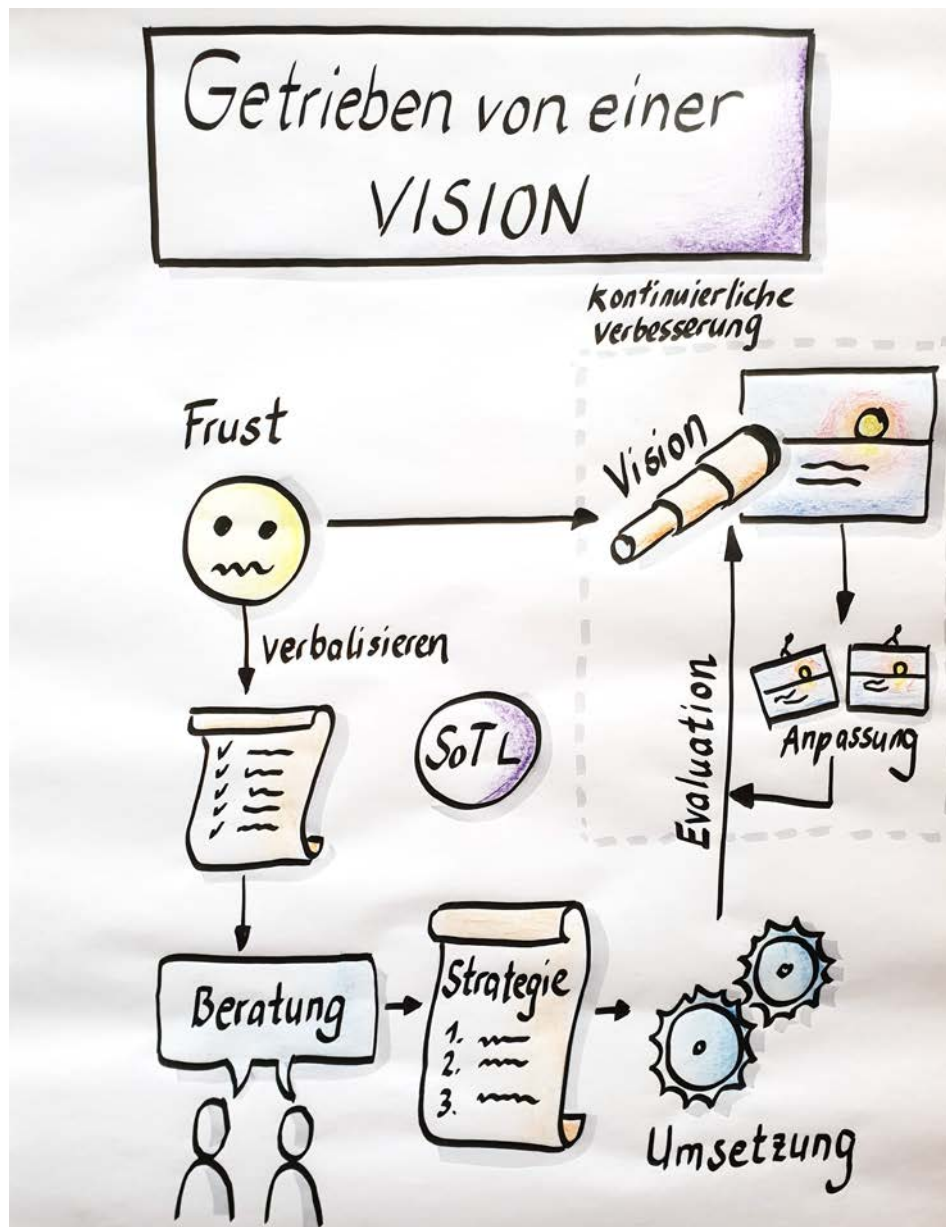 Getrieben von einer
VISION
kontinuierliche
Verbesserung
Frust
Vision
verbalisieren
SoTL
Evaluation
Anpassung
Beratung
Strategie
1.
2.
3.
Umsetzung